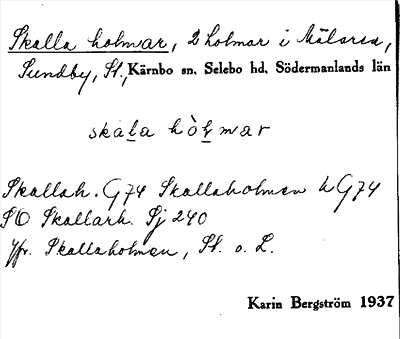 Skalla holmar, 2 holmar i Mälaren,
Sundby, St., Kärnbo sn. Selebo hd. Södermanlands län
skal̲a hòl̲mar
Skallah. G74 Skallaholmen h G74
SO Skallarh. Sj 240
Jfr. Skallaholmen, St. o. L.
Karin Bergström 1937